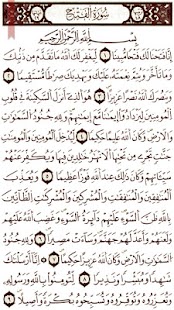 سُورَةُ الفَتْحِ
بِسْمِ اللَّهِ الرَّحْمَٰنِ الرَّحِيمِ
إِنَّا فَتَحْنَا لَكَ فَتْحًا مُّبِينًا ١ لِّيَغْفِرَ لَكَ اللَّهُ مَا تَقَدَّمَ مِن ذَنبِكَ
وَمَا تَأَخَّرَ وَيُتِمَّ نِعْمَتَهُ عَلَيْكَ وَيَهْدِيَكَ صِرَاطًا مُّسْتَقِيمًا ٢
وَيَنصُرَكَ اللَّهُ نَصْرًا عَزِيزًا ٣ هُوَ الَّذِي أَنزَلَ السَّكِينَةَ فِي قُلُوبِ
الْمُؤْمِنِينَ لِيَزْدَادُوا إِيمَانًا مَّعَ إِيمَانِهِمْ وَلِلَّهِ جُنُودُ السَّمَاوَاتِ
وَالْأَرْضِ وَكَانَ اللَّهُ عَلِيمًا حَكِيمًا ٤ لِّيُدْخِلَ الْمُؤْمِنِينَ وَالْمُؤْمِنَاتِ
جَنَّاتٍ تَجْرِي مِن تَحْتِهَا الْأَنْهَارُ خَالِدِينَ فِيهَا وَيُكَفِّرَ عَنْهُمْ
سَيِّئَاتِهِمْ وَكَانَ ذَٰلِكَ عِندَ اللَّهِ فَوْزًا عَظِيمًا ٥ وَيُعَذِّبَ
الْمُنَافِقِينَ وَالْمُنَافِقَاتِ وَالْمُشْرِكِينَ وَالْمُشْرِكَاتِ الظَّانِّينَ
بِاللَّهِ ظَنَّ السَّوْءِ عَلَيْهِمْ دَائِرَةُ السَّوْءِ وَغَضِبَ اللَّهُ عَلَيْهِمْ
وَلَعَنَهُمْ وَأَعَدَّ لَهُمْ جَهَنَّمَ وَسَاءَتْ مَصِيرًا ٦ وَلِلَّهِ جُنُودُ
السَّمَاوَاتِ وَالْأَرْضِ وَكَانَ اللَّهُ عَزِيزًا حَكِيمًا ٧ إِنَّا أَرْسَلْنَاكَ
شَاهِدًا وَمُبَشِّرًا وَنَذِيرًا ٨ لِّتُؤْمِنُوا بِاللَّهِ وَرَسُولِهِ
وَتُعَزِّرُوهُ وَتُوَقِّرُوهُ وَتُسَبِّحُوهُ بُكْرَةً وَأَصِيلًا ٩